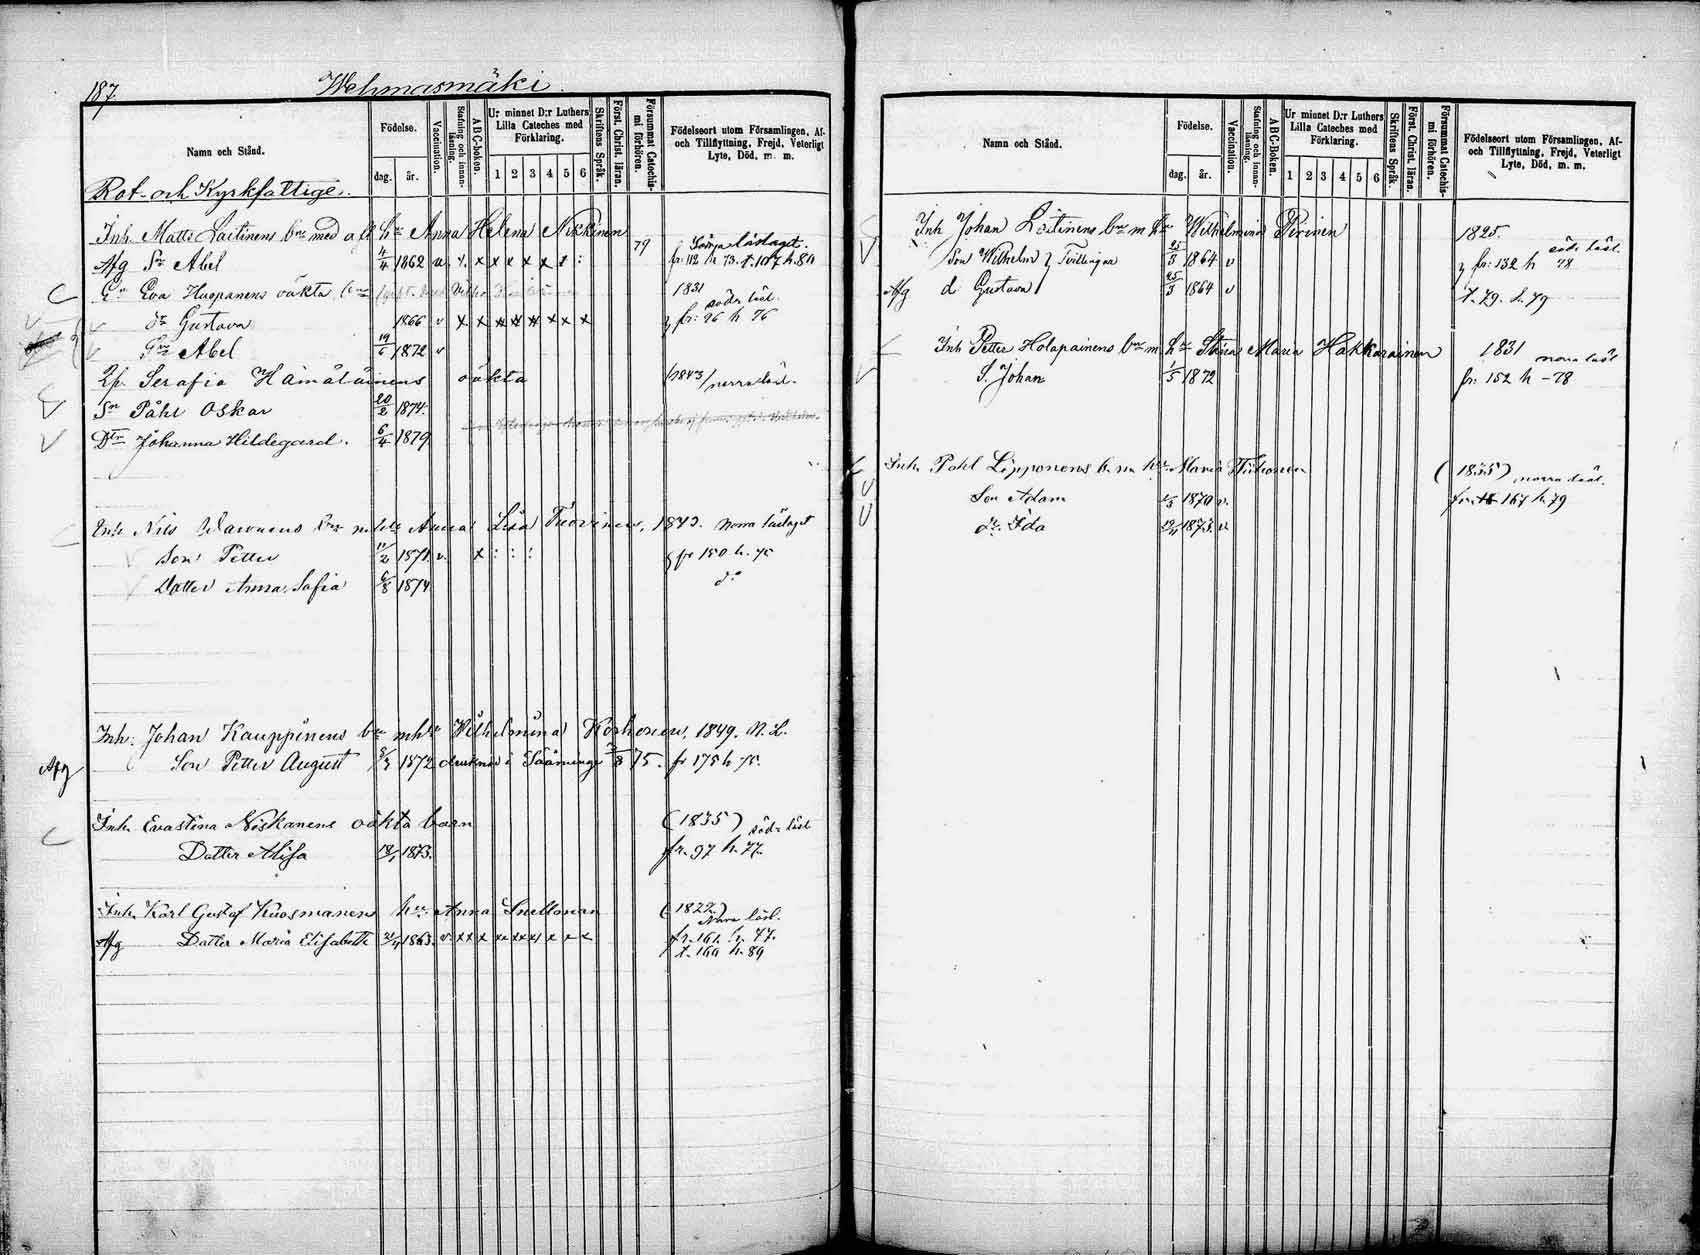 187
Wehmasmäki.
Namn och Stånd.
Födelse.
dag.
år.
Vaccination.
Stafning och innanläsning.
A B C-boken.
Ur minnet D:r Luthers Lilla Cateches med Förklaring.
1 2 3 4 5 6
Skriftens Språk.
Först. Christ. läran.
Försummat Catechismi förhören.
Födelseort utom Församlingen, Af- och Tillflyttning, Frejd, Veterligt Lyte, Död, m. m.
Rot- och Kyrkfattige.
Inh. Matts Laitinens b:n med afl h:u Anna Helena Nikkinen
Afg S:n Abel 4/4 1862 v. x x x x x x : 79 fr: 112 h 73. t. 107 h. 80
Eva Huppanens oäkta 1831
södr läsl.
d:r Gustava 1866 v x x x x x x x x fr: 26 h 76
S:n Abel 19/6 1872 v
Serafia Hämäläinens oäkta 1843 / norra läsl.
S:n Påhl Oskar 20/2 1874.
D:tr Johanna Hildegard. 6/4 1879
Inh. Nils b:n m h:u Anna Lisa Tuovinen, 1843. Norra läslaget
Son Petter 11/2 1871 v. x : : : fr 150 h. 75
Dotter Anna Sofia 6/8 1874 d:o
Inh. Johan Kauppinens b:n m h:u Wilhelmina Korhonen, 1849. N. L.
Afg
Son Petter August 1872 drunknad i Säämingi 8 75. fr 175 h 75.
Inh. Evastina Niskanens oäkta barn (1835) södr läsl.
Dotter Alisa 18/1 1873. fr. 97 h. 77.
Inh. Karl Gustaf Kuosmanen h:u Anna Snellman (1822)
Norra läsl.
Afg Dotter Maria Elisabeth 21/4 1863. v x x x x x x x x x fr. 161 h. 77.
t. 160 h. 80
Namn och Stånd.
Födelse.
dag.
år.
Vaccination.
Stafning och innanläsning.
A B C-Boken.
Ur minnet D:r Luthers Lilla Cateches med Förklaring.
1 2 3 4 5 6
Skriftens Språk.
Först. Christ. läran.
Försummat Catechismi förhören.
Födelseort utom Församlingen, Af- och Tillflyttning, Frejd, Veterligt Lyte, Död, m. m.
Inh Johan Löitinens b:n m h:u Wilhelmina Piirinen 1825.
södr läsl
Son Wilhelm } Tvillingar 25/3 1864 v fr: 132 h 78
Afg d Gustava 25/3 1864 v t. 79. h. 79
Inh Petter Holapainens b:n m h:u Stina Maria Hakkarainen 1831
norra läsl
S. Johan 1/5 1872 fr. 152 h - 78
Inh. Pohl Lipponens b. m h:u Maria (1835) norra läsl.
Son Adam 1870 v. fr. 167 h. 79
d:r Ida 1873. v.